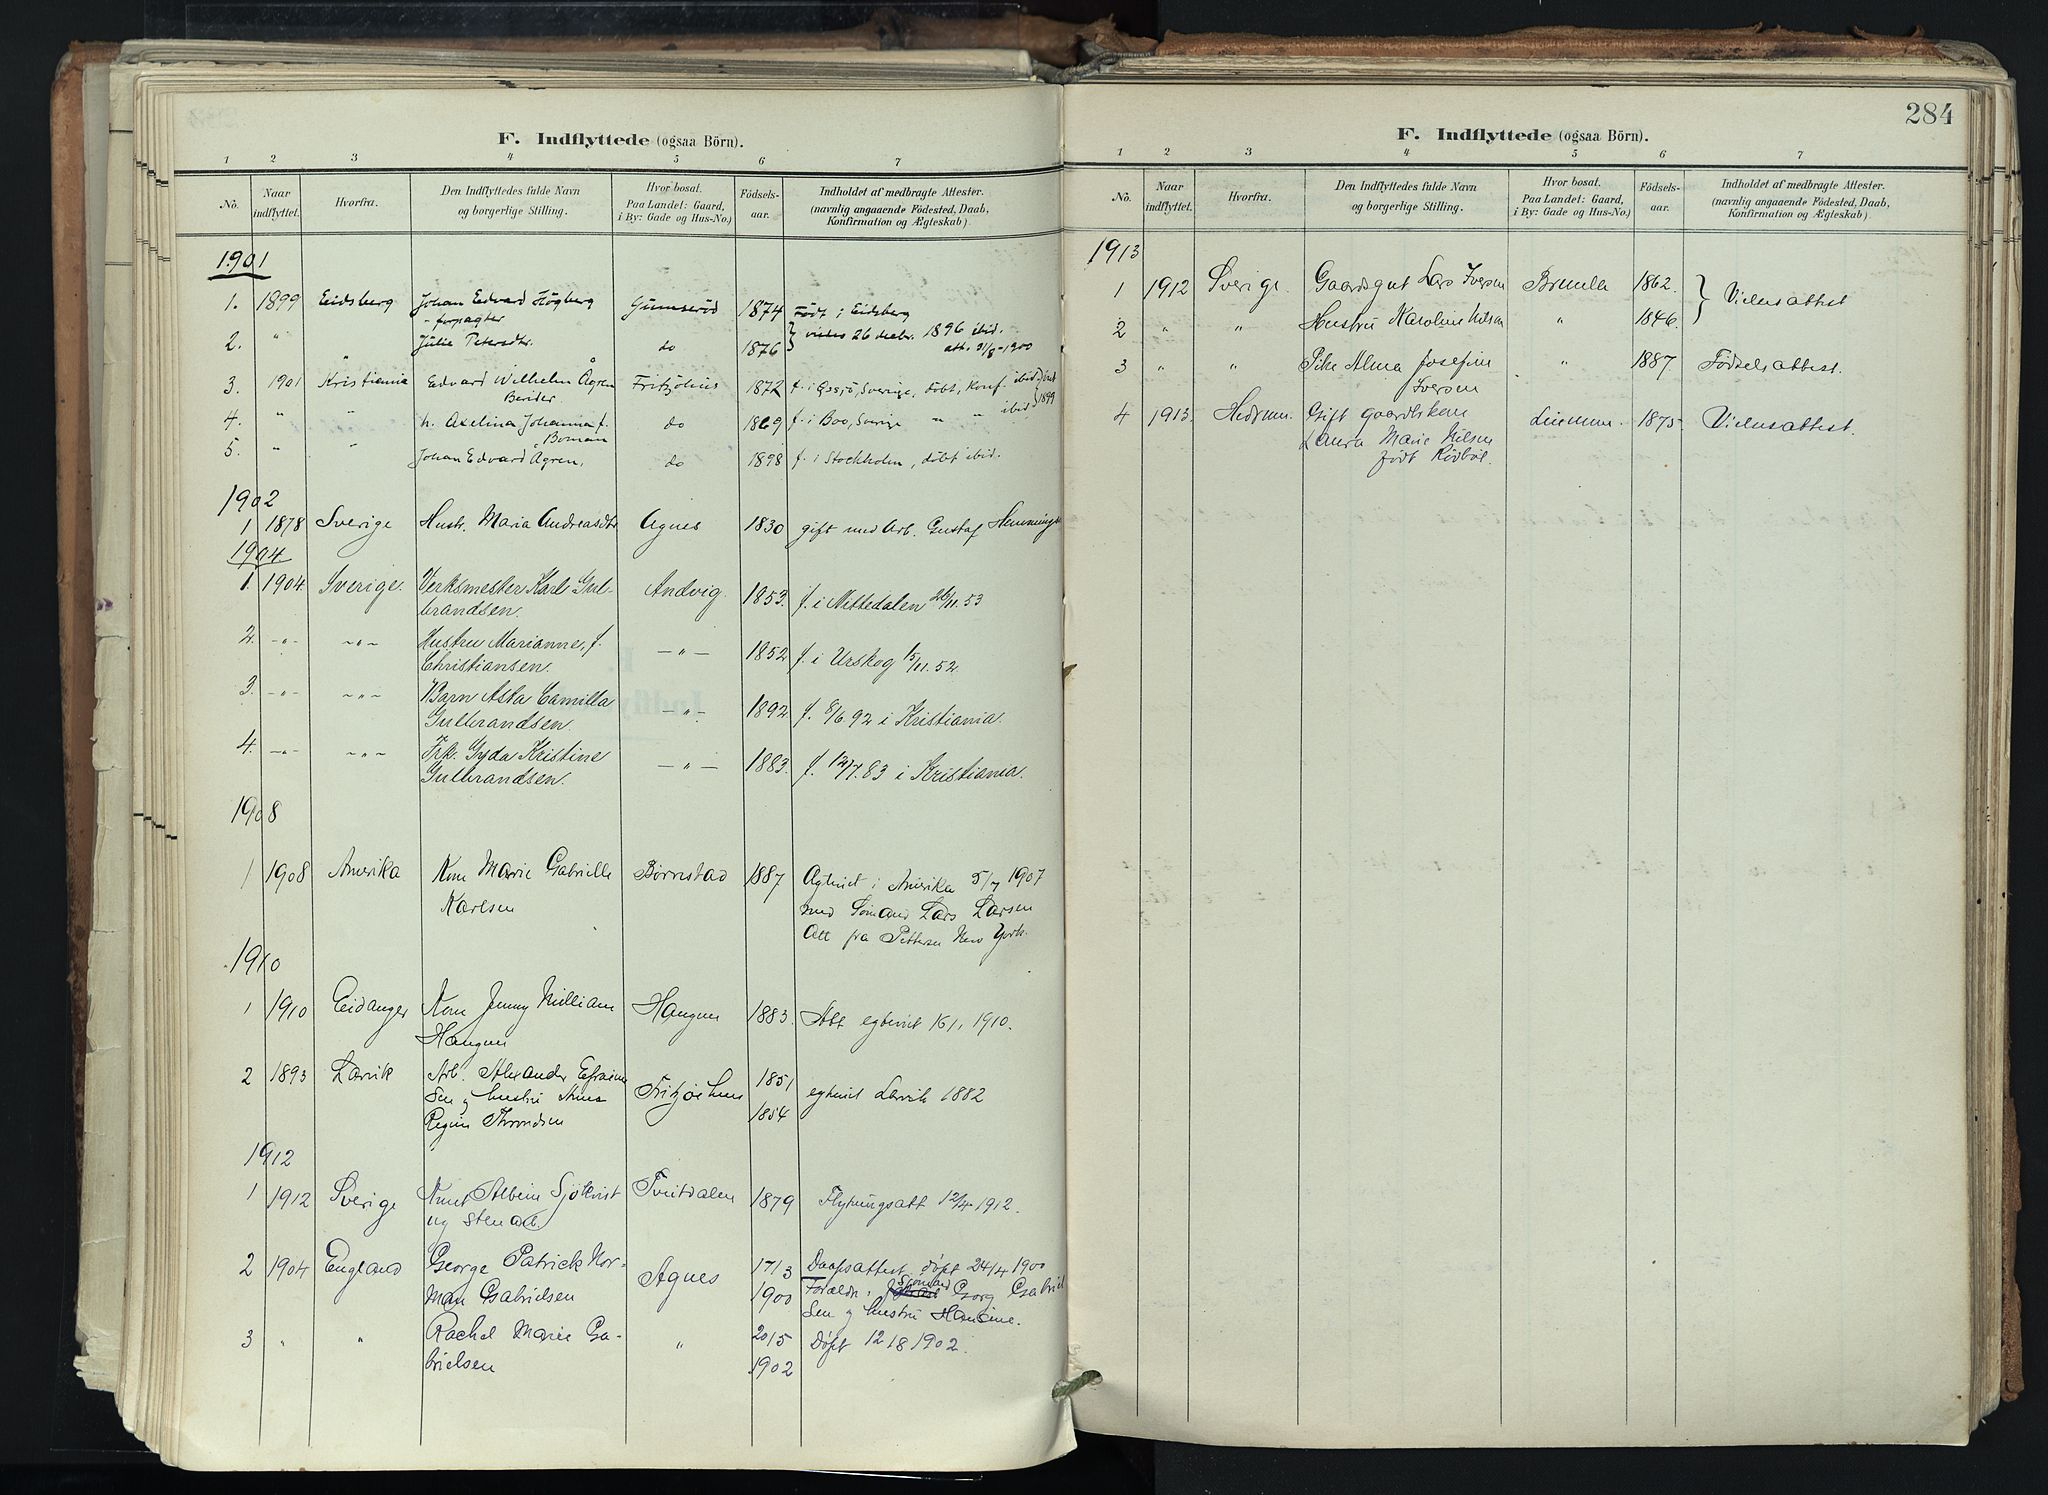 F. Indflyttede (ogsaa Börn).
1 2 3 4 5 6 7
No. Naar indflyttet. Hvorfra. Den Indflyttedes fulde Navn og borgerlige Stilling. Hvor bosat. Paa Landet: Gaard, i By: Gade og Hus-No.) Födsels-aar. Indholdet af medbragte Attester. (navnlig angaaende Födested, Daab, Konfirmation og Ægteskab).
1901
1. 1899 Eidsberg Johan Edvard Högberg Gumseröd 1874 Født i Eidsberg
forpagter
2. " " Julie Petersdtr. do 1876 viedes 26 decbr. 1896 ibid.
att. 31/8-1900
3. 1901 Kristiania Edvard Wilhelm Ågren Fritzöhus 1872 f. i Gssjö, Sverige, döbt, konf. ibid
Berider 1899
4. " " h. Axelina Johanna f. do 1869 f. i Boo, Sverige " " ibid
Boman
5. " " Johan Edvard Ågren, do 1898 f. i Stockholm, döbt ibid.
1902
1 1878 Sverige Hustr. Maria Andreasdtr Agnes 1830 gift med Arb. Gustaf Hemmings
1904
1. 1904 Sverige. Verksmester Karl Gul- Andvig. 1853. f. i Nittedalen 26/11.53
brandsen.
2. -"- -"- Hustru Marianne, f. -"- 1852 f. i Urskog 15/11.52.
Christiansen.
3. -"- -"- Barn Asta Camilla -"- 1892 f. 8/6 92 i Kristiania.
Gulbrandsen.
4. -"- -"- Frk. Gyda Kristine -"- 1883. f. 12/7.83 i Kristiania.
Gulbrandsen.
1908
1 1908 Amerika Kone Marie Gabrielle Børnstad 1887 Ægteviet i Amerika 5/7 1907
Karlsen med Sømand Lars Larsen
Att fra Pettersen New York.
1910
1 1910 Eidanger Kone Jenny Milliam Haugen 1883. Att egteviet 16/1 1910.
Haugen
2 1893 Larvik Arb. Alexander Efraim Fritzøehus 1851 egteviet Larvik 1882
sen og hustru
1854
Regine Throndsen
1912
1 1912 Sverige Knut Albin Sjökvist Tveitdalen 1879 Flytningsatt 12/4 1912.
2 1904 England George Patrick Nor- Agnes 17/3 Daapsattest. døpt 24/4 1900
man Gabrielsen 1900 Forældr: Sjømand Georg Gabriel
sen og hustru Hansine.
3 " " Rachel Marie Ga- " 20/5 Døpt 12/8 1902.
brielsen 1902
284
F. Indflyttede (ogsaa Börn).
1 2 3 4 5 6 7
No. Naar indflyttet. Hvorfra. Den Indflyttedes fulde Navn og borgerlige Stilling. Hvor bosat. Paa Landet: Gaard, i By: Gade og Hus-No.) Födsels-aar. Indholdet af medbragte Attester. (navnlig angaaende Födested, Daab, Konfirmation og Ægteskab).
1913
1 1912 Sverige. Gaardsgut Lars Iversen Brunla 1862. Vielsesattest
2 " " Hustru Karoline Nilsen " 1846.
3 " " Pike Alma Josefine " 1887. Fødselsattest.
Iversen
4 1913. Hedrum. Gift gaardbskerne 1875. Vielsesattest.
Laura Marie Nilsen
født Rødbøl.